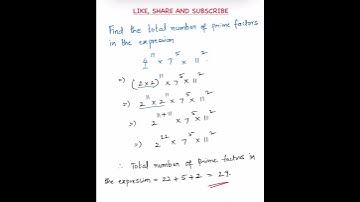 LIKE, SHARE AND SUBSCRIBE
Find the total number of prime factors
in the expression
4¹¹ × 7⁵ × 11²
⇒) (2×2)¹¹ × 7⁵ × 11²
⇒) 2¹¹ × 2¹¹ × 7⁵ × 11²
⇒) 2¹¹⁺¹¹ × 7⁵ × 11²
⇒) 2²² × 7⁵ × 11²
∴ Total number of prime factors in
the expression = 22 + 5 + 2 = 29.